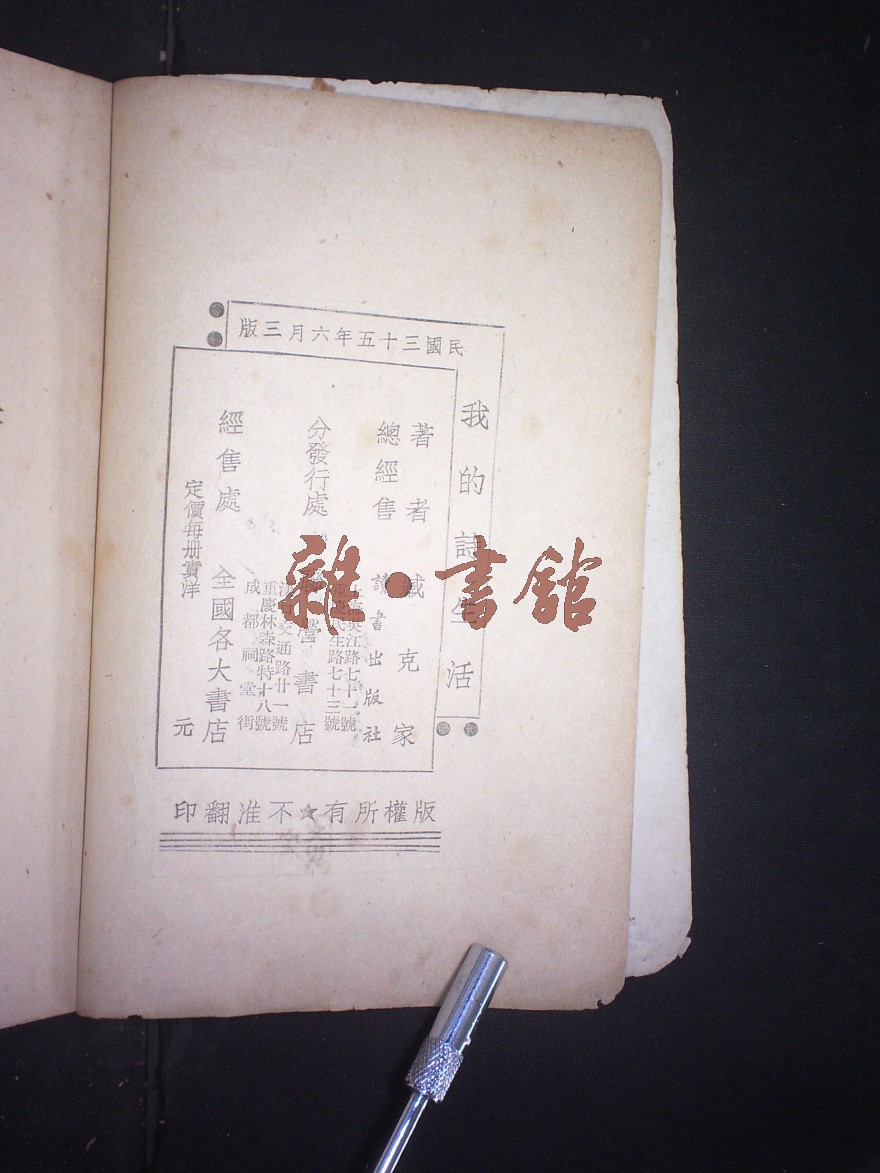 民國三十五年六月三版
我的詩生活
著者 臧克家
總經售 讀書出版社
上海吳江路七十一號
重慶民生路七十三號
分發行處 聯營書店
漢口交通路廿一號
重慶林森路特十八號
成都祠堂街
經售處 全國各大書店
定價每册實洋 元
版權所有★不准翻印
雜·書館